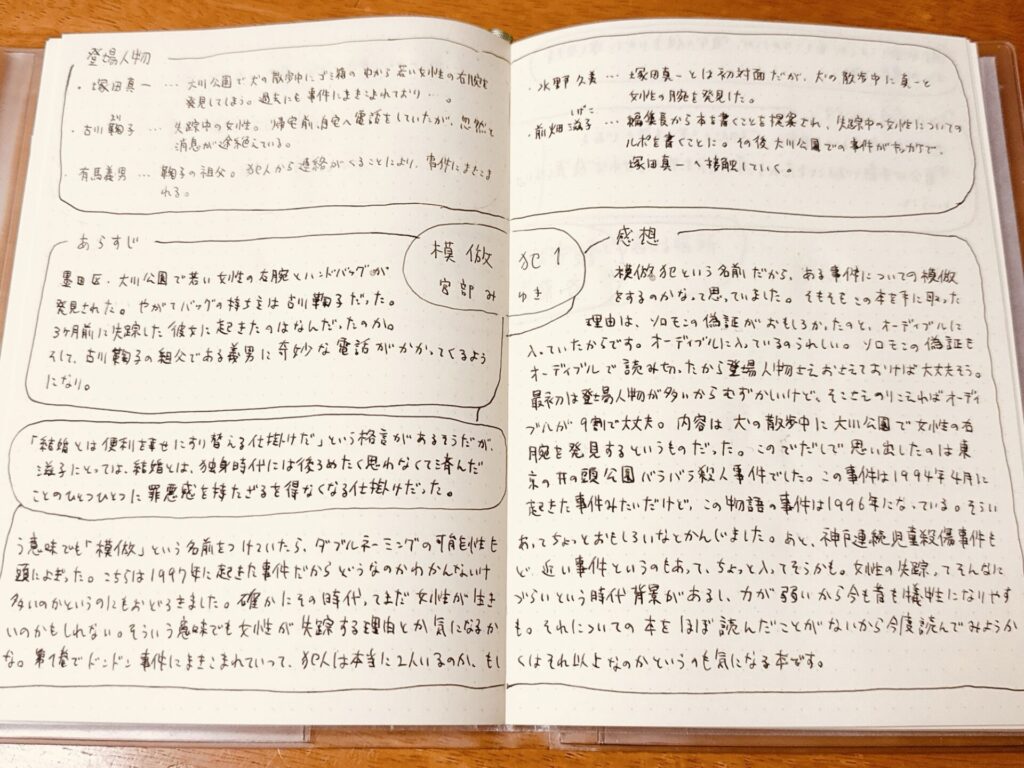 登場人物
・塚田真一 … 大川公園で犬の散歩中にゴミ箱の中から若い女性の右腕を
発見してしまう。過去にも事件にまきこまれており…。
・古川鞠子 … 失踪中の女性。帰宅前、自宅へ電話をしていたが、忽然と
まりこ
消息が途絶えている。
・有馬義男 … 鞠子の祖父。犯人から連絡がくることにより、事件にまきこま
れる。
・水野久美 … 塚田真一とは初対面だが、犬の散歩中に真一と
女性の腕を発見した。
しげこ
・前畑滋子 … 編集長から本を書くことを提案され、失踪中の女性についての
ルポを書くことに。その後大川公園での事件がキッカケで、
塚田真一へ接触していく。
模倣犯1
宮部みゆき
あらすじ
墨田区・大川公園で若い女性の右腕とハンドバッグが
発見された。やがてバッグの持ち主は古川鞠子だった。
3ヶ月前に失踪した彼女に起きたのはなんだったのか。
そして、古川鞠子の祖父である義男に奇妙な電話がかかってくるよう
になり。
「結婚とは便利を幸せにすり替える仕掛けだ」という格言があるそうだが、
滋子にとっては、結婚とは、独身時代には後ろめたく思わなくて済んだ
ことのひとつひとつに罪悪感を持たざるを得なくなる仕掛けだった。
感想
模倣犯という名前だから、ある事件についての模倣
をするのかなって思っていました。そもそもこの本を手に取った
理由は、ソロモンの偽証がおもしろかったのと、オーディブルに
入っていたからです。オーディブルに入っているのうれしい。ソロモンの偽証も
オーディブルで読み切ったから登場人物さえおさえておけば大丈夫そう。
最初は登場人物が多いからむずかしいけど、そこさえのりこえればオーディ
ブルが9割で大丈夫。内容は犬の散歩中に大川公園で女性の右
腕を発見するというものだった。このでだしで思い出したのは東
京の井の頭公園バラバラ殺人事件でした。この事件は1994年4月に
起きた事件みたいだけど、この物語の事件は1996年になっている。そうい
う意味でも「模倣」という名前をつけていたら、ダブルネーミングの可能性も
あってちょっとおもしろいなとかんじました。あと、神戸連続児童殺傷事件も
頭によぎった。こちらは1997年に起きた事件だからどうなのかわかんないけ
ど、近い事件というのもあって、ちょっと入ってそうかも。女性の失踪ってそんなに
多いのかというのにもおどろきました。確かにその時代ってまだ女性が生き
づらいという時代背景があるし、力が弱いから今も昔も犠牲になりやす
いのかもしれない。そういう意味でも女性が失踪する理由とか気になるか
も。それについての本をほぼ読んだことがないから今度読んでみようか
な。第1巻でドンドン事件にまきこまれていって、犯人は本当に2人いるのか、もし
くはそれ以上なのかというのも気になる本です。